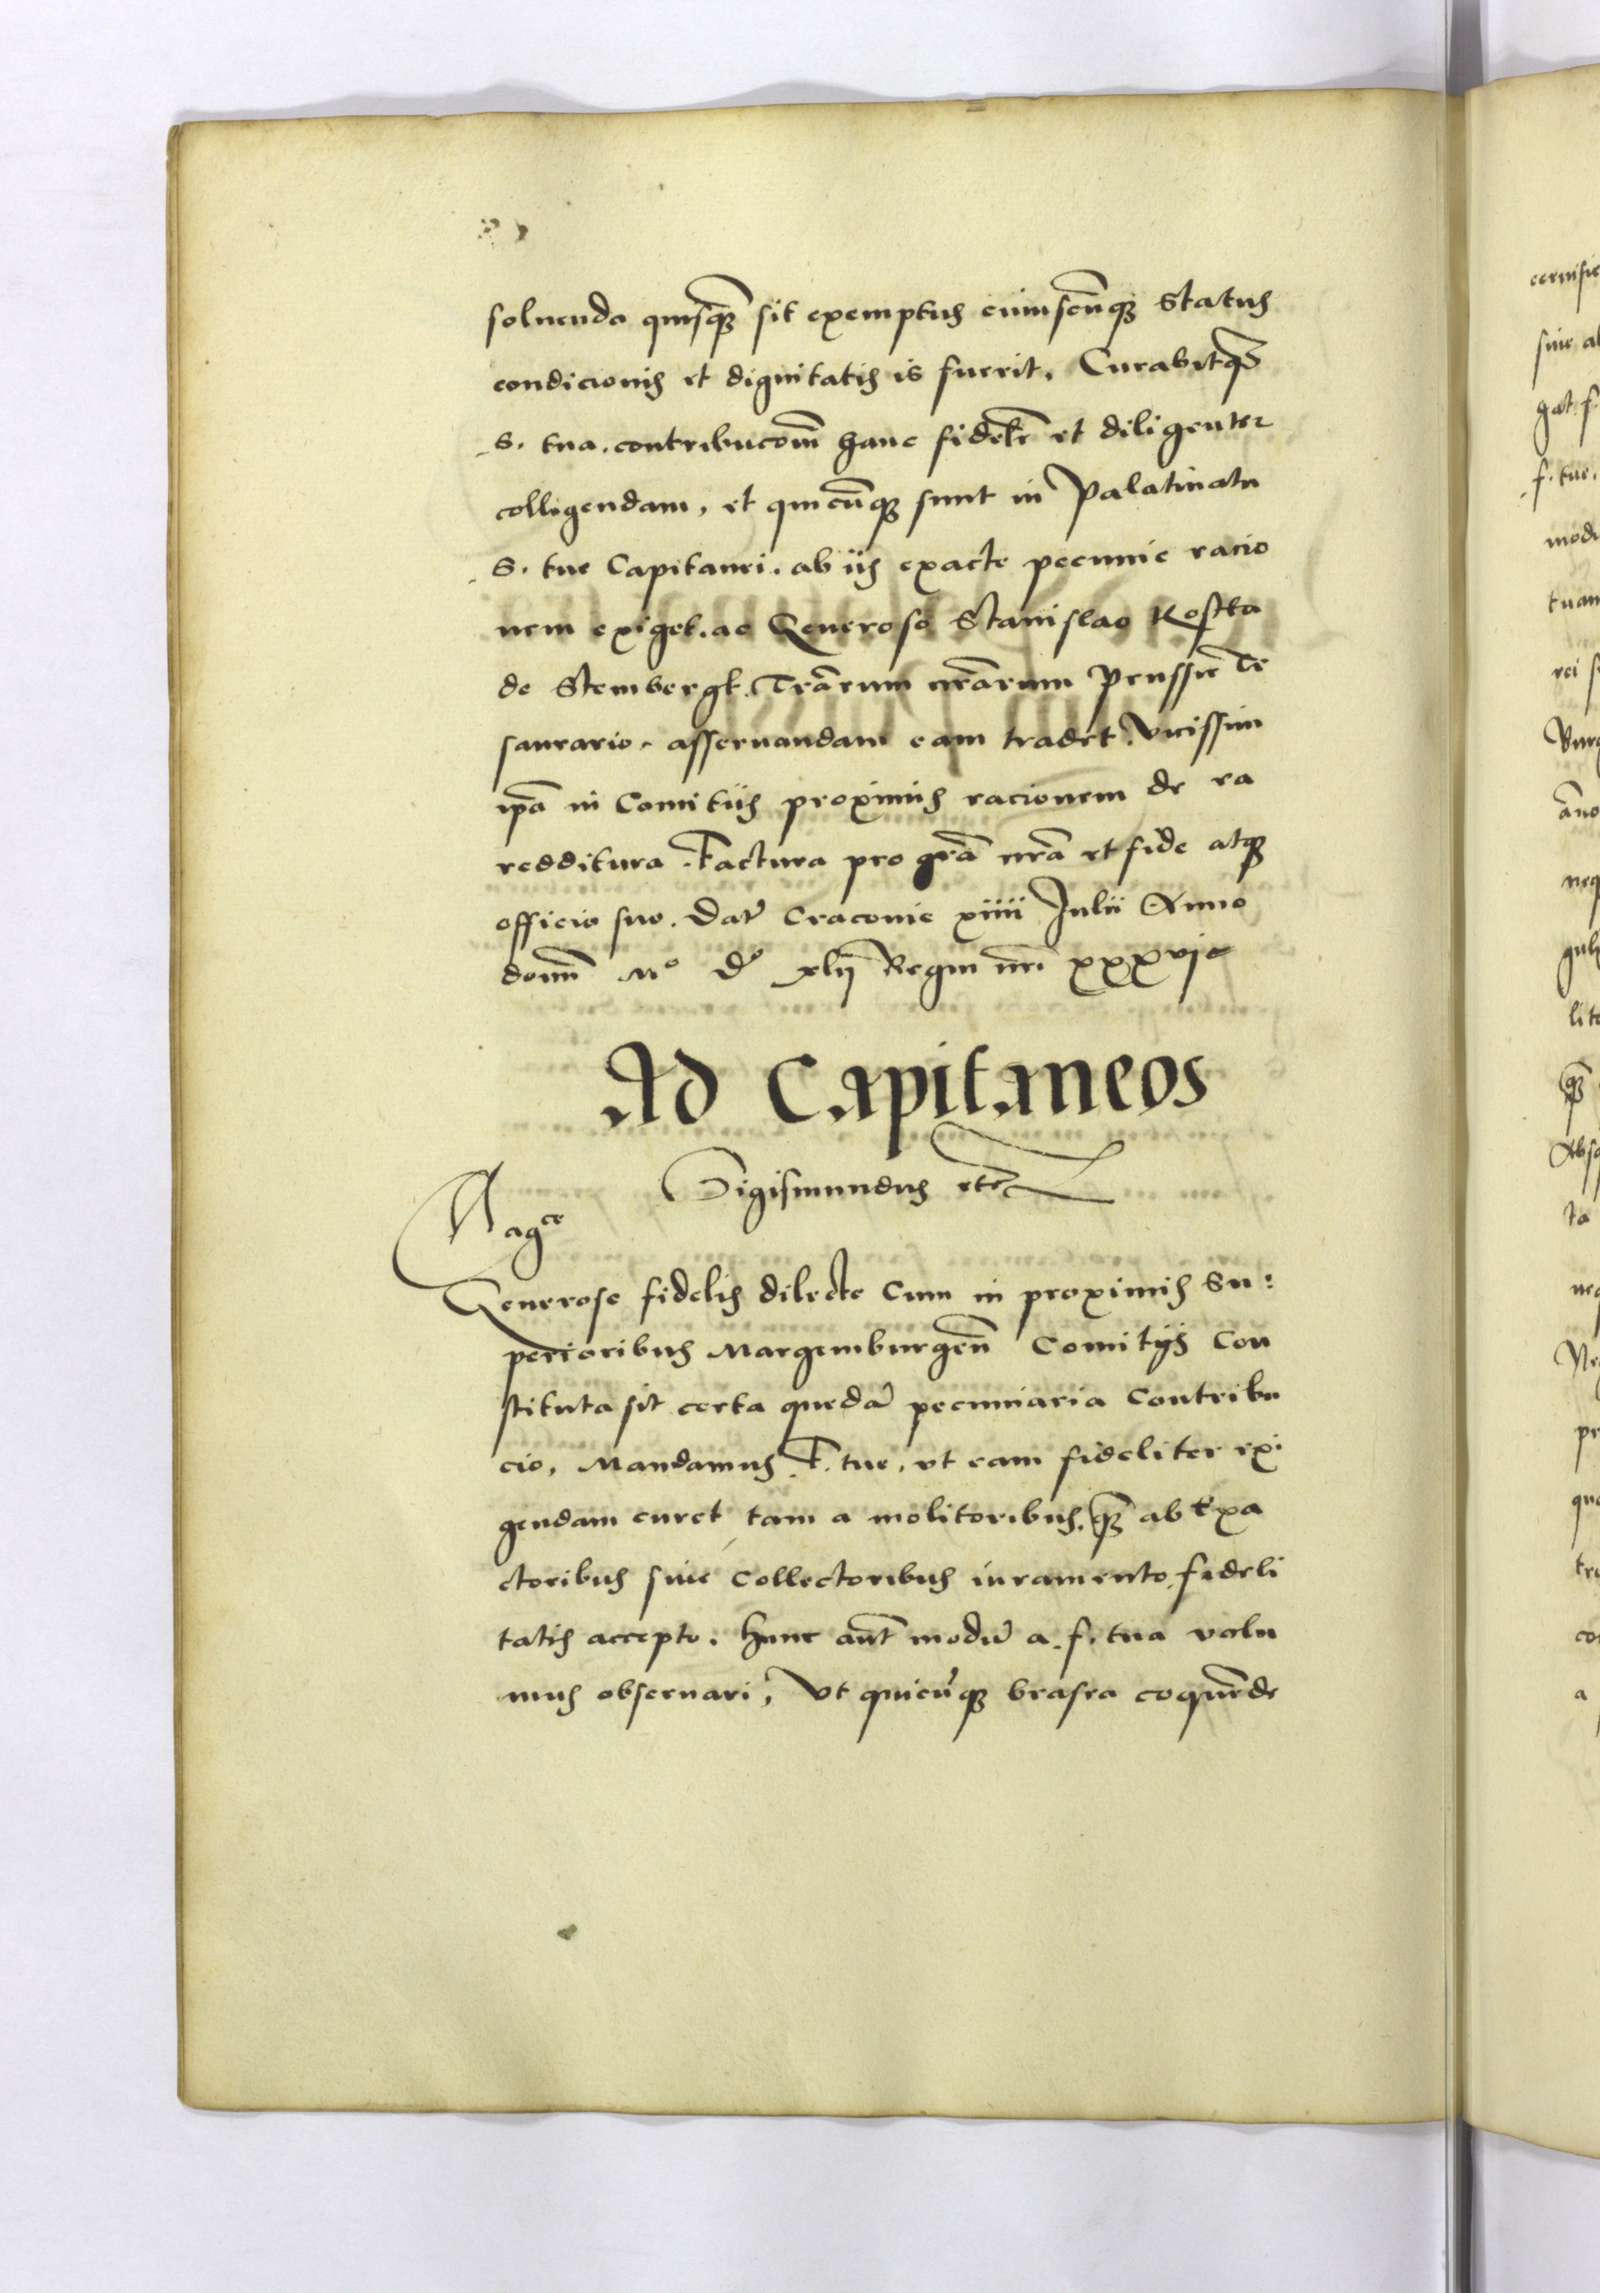 soluenda quisq̃ȝ sit exemptus cuiuscũqȝ Status
condicionis et dignitatis is fuerit. Curabitqȝ
S. tua. contribucõm hanc fidelr̃ et diligenter
colligendam, et quicũqȝ sunt in Palatinatu
S. tue Capitanei. ab iis exacte pecunie racio
nem exiget. ac Generoso Stanislao Kostka
de Stembergk. Trãrum nrãrum Prussie Te
saurario. asseruandam eam tradet. Vicissim
ipã in Comitiis proximis racionem de ea
redditura. Factura pro grã nrã et fide atqȝ
officio suo. Dat̃ Cracouie xiiii Julii Anno
domĩ Mº Dº xlij Regni nr̃i xxxvje
Ad Capitaneos
Sigismundus etc̃
Magce
Generose fidelis dilecte Cum in proximis Su:
perioribus Margemburgeñ Comitijs Con
stituta sit certa quedã pecuniaria Contribu
cio, Mandamus F. tue, vt eam fideliter exi
gendam curet tam a molitoribus, q̃ȝ ab Exa
ctoribus siue Collectoribus iuramento fideli
tatis accepto. Hunc aut̃ modũ a. f. tua volu
mus obseruari, Vt quicũqȝ brasea coquẽde
cernisie
siue al
gat f.
f. tue.
modu
tuam
rei s
Burg
ãno
neq
gul
lit
q̃ȝ
Abs
ta
neq
Ne
pr
qua
tr
co
a